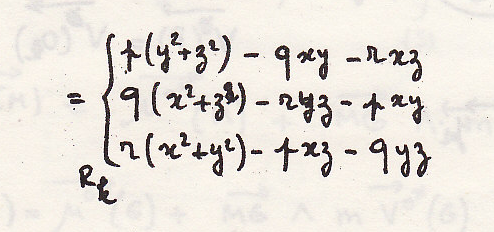 p(y²+z²) - qxy - rxz
= { q(x²+z²) - ryz - pxy
r(x²+y²) - pxz - qyz
R_k